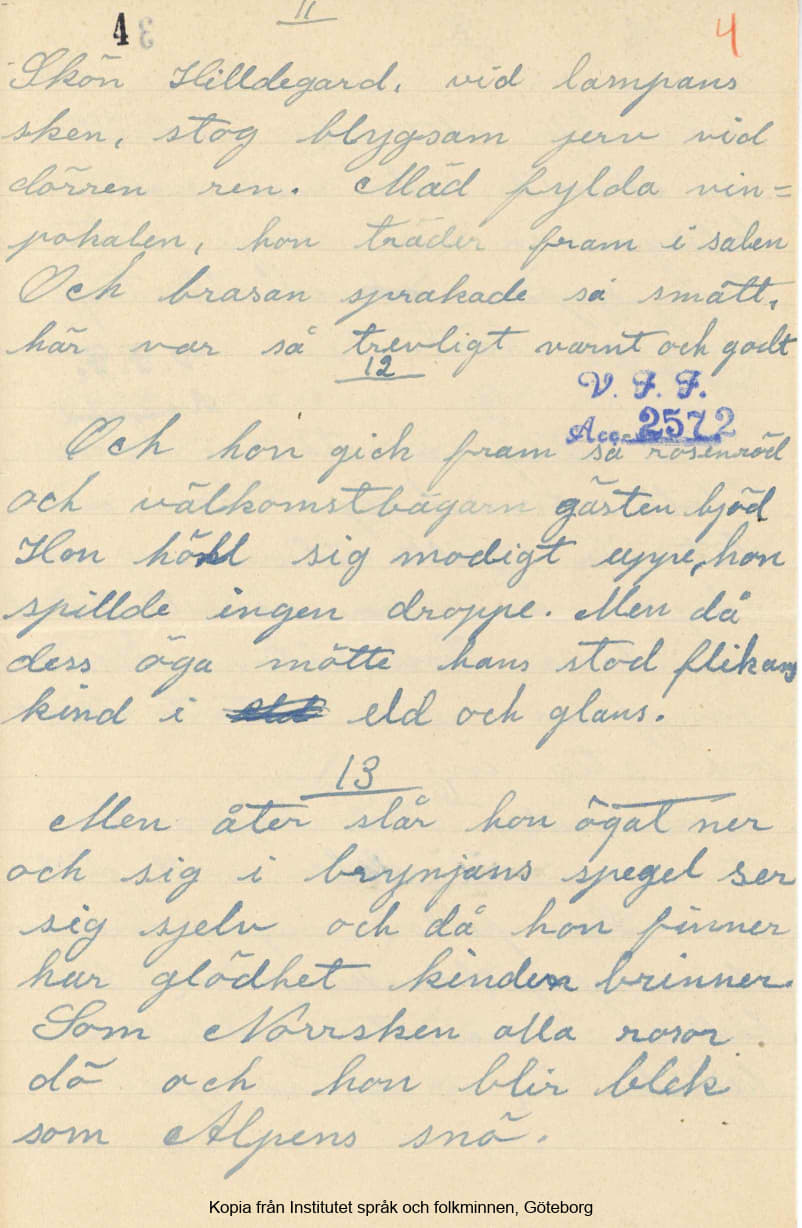 11
4 3
4
Skön Hilldegard, vid lampans
sken, stog blygsam jerv vid
dörren ren. Mäd fylda vin=
pokalen, hon träder fram i salen
Och brasan sprakade så smått,
här var så trevligt varnt och godt
12
V. F. F.
Acc. 2572
Och hon gick fram så rosenröd
och välkomstbägarn gästen bjöd
Hon höll sig modigt uppe, hon
spillde ingen droppe. Men då
dess öga mötte hans stod flikans
kind i eld och glans.
13
Men åter slår hon ögat ner
och sig i brynjans spegel ser
sig sjelv och då hon finner
hur glödhet kinden brinner.
Som Norrsken alla rosor
dö och hon blir blek
som Alpens snö.
Kopia från Institutet språk och folkminnen, Göteborg